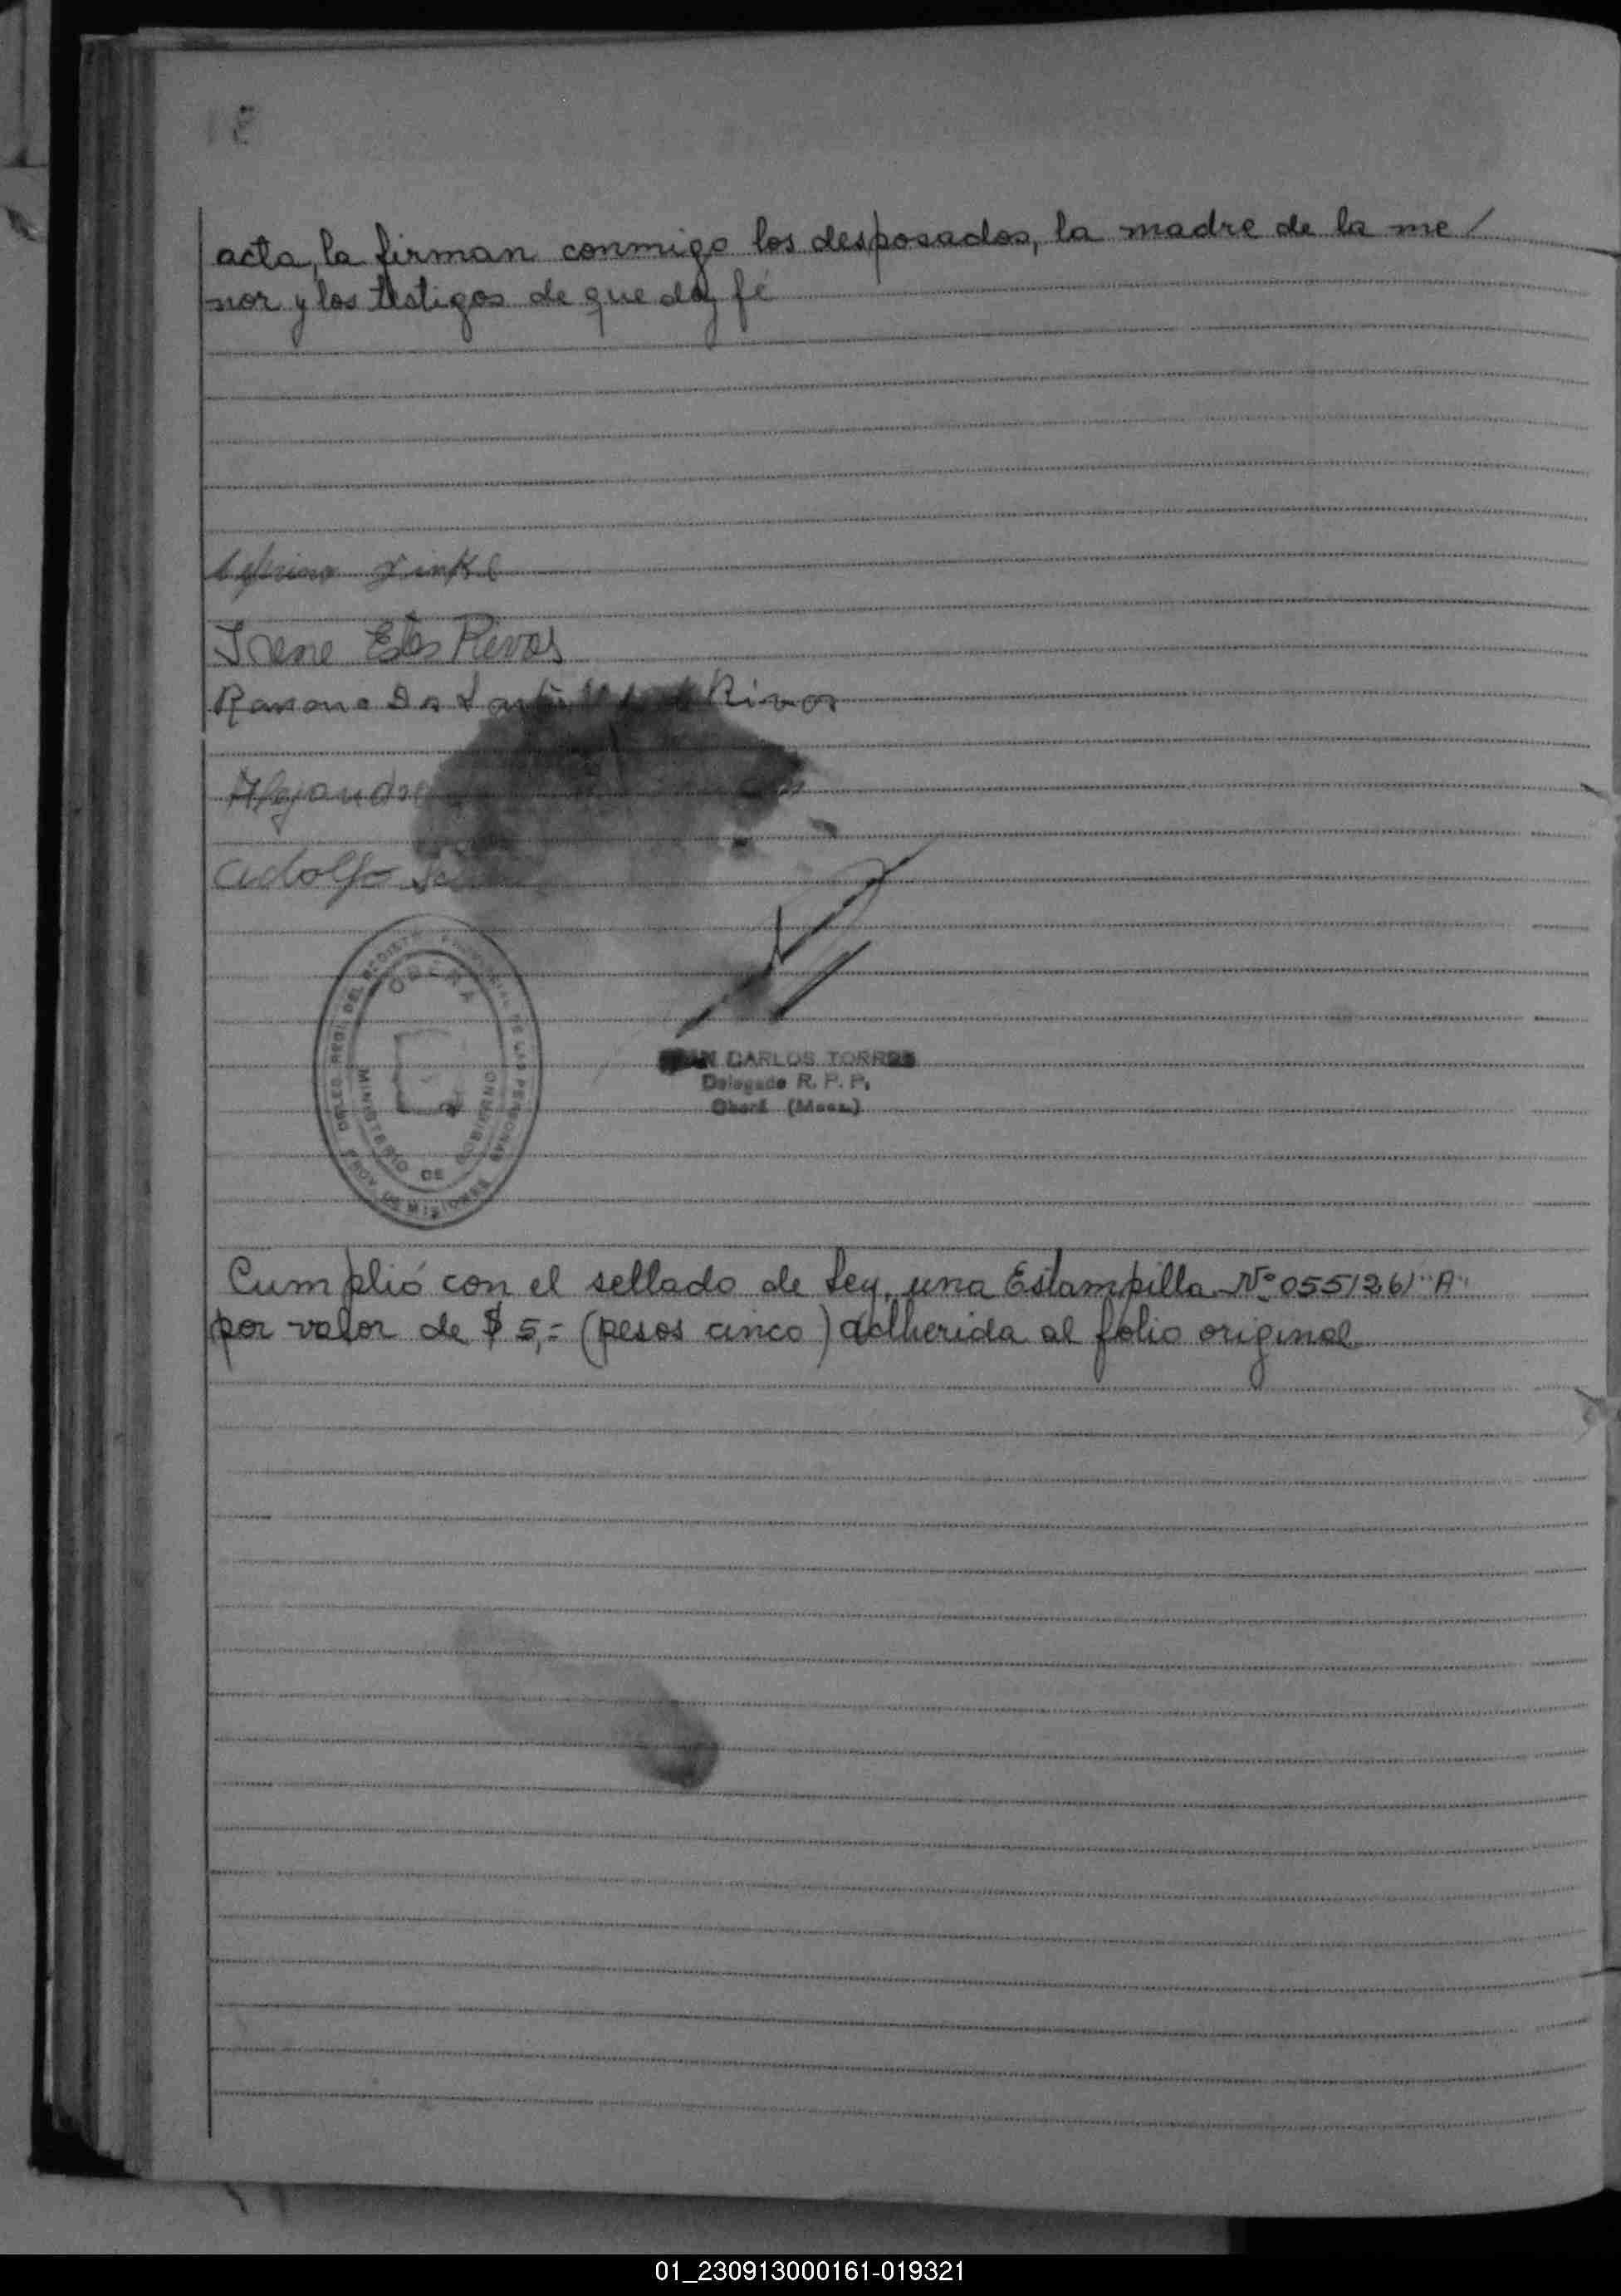 acta, la firman conmigo los desposados, la madre de la me/
nor y los testigos de que doy fé
Irene Rivas
Ramona Da Rivas
Alejandro
Adolfo
OBERA
MINISTERIO DE GOBIERNO
PROV. DE MISIONES
CARLOS TORRES
Delegado R. P. P.
Oberá (Mnes.)
Cumplió con el sellado de Ley, una Estampilla Nº 055126) "A"
por valor de $ 5,= (pesos cinco) adherida al folio original
01_230913000161-019321